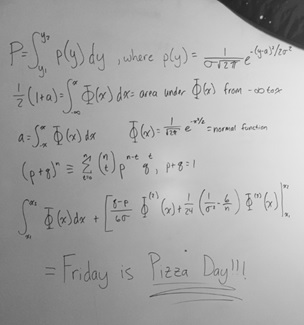 P = ∫_{y₁}^{y₂} p(y) dy , where p(y) = 1/(σ√2π) e^{-(y-a)²/2σ²}
1/2 (1+a) = ∫_{-∞}^{x} Φ(x) dx = area under Φ(x) from -∞ to x
a = ∫_{-x}^{x} Φ(x) dx Φ(x) = 1/√2π e^{-x²/2} = normal function
(p+q)ⁿ ≡ (n t) p^{n-t} q^t , p+q=1
∫_{x₁}^{x₂} Φ(x) dx + [ (q-p)/6σ Φ^{(2)}(x) + 1/24 (1/σ² - 6/n) Φ^{(3)}(x) ]_{x₁}^{x₂}
= Friday is Pizza Day!!!